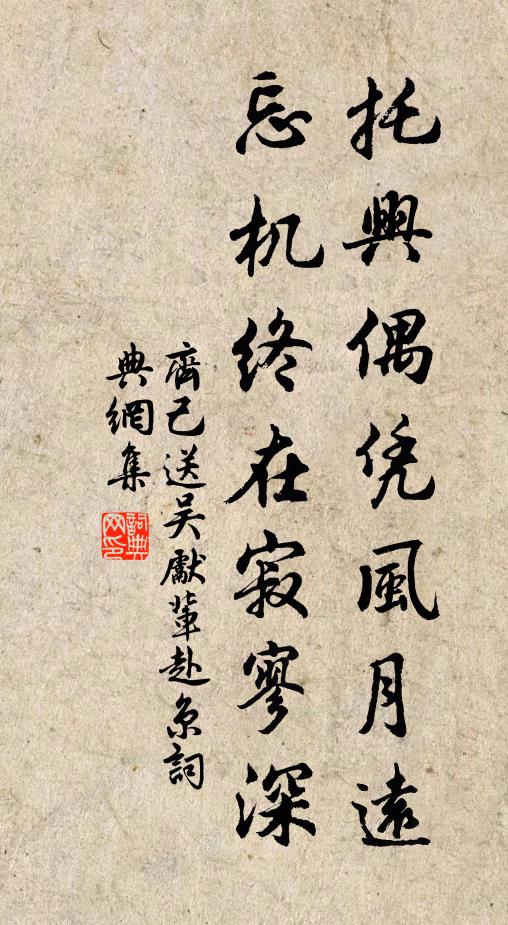 托興偶凭風月遠
忘机終在寂寥深
齊己送吴獻輩赴京詞
典網集
詞典网印